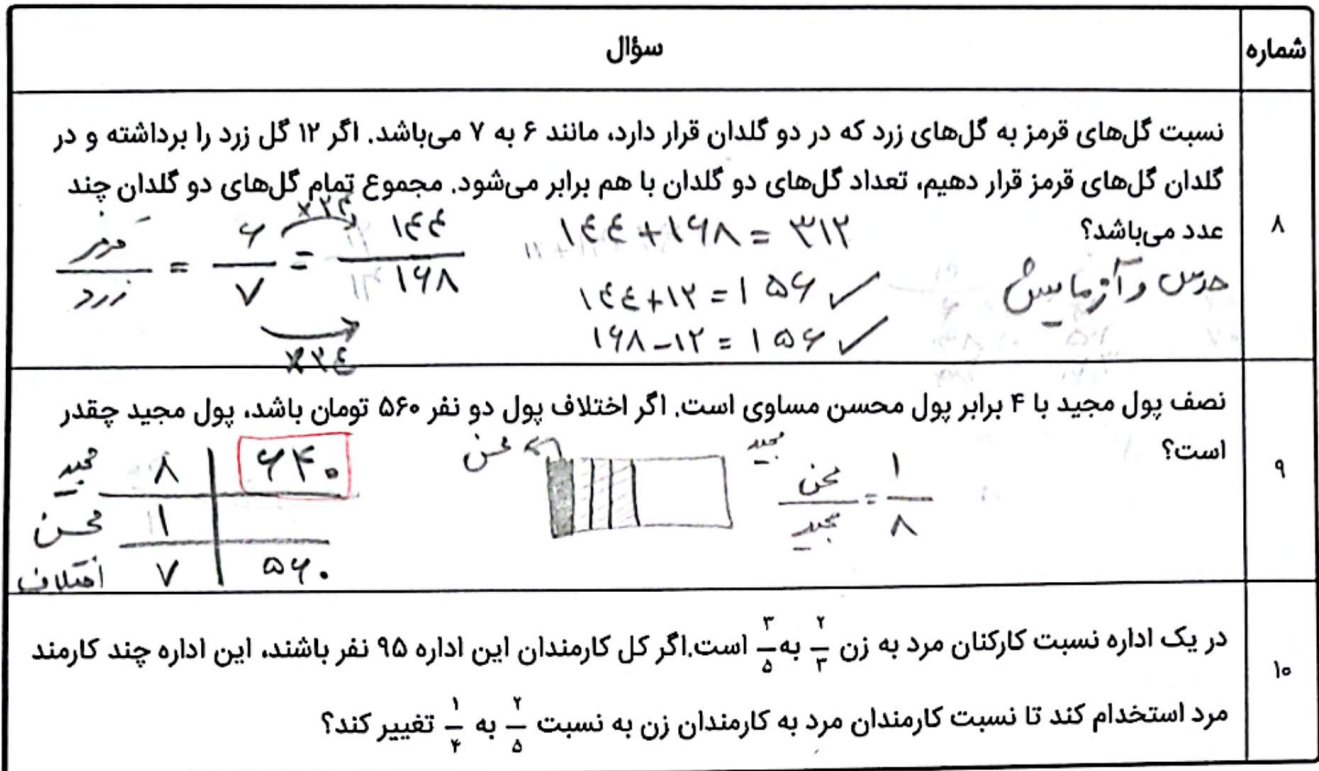 شماره
سؤال
۸
نسبت گل‌های قرمز به گل‌های زرد که در دو گلدان قرار دارد، مانند ۶ به ۷ می‌باشد. اگر ۱۲ گل زرد را برداشته و در
گلدان گل‌های قرمز قرار دهیم، تعداد گل‌های دو گلدان با هم برابر می‌شود. مجموع تمام گل‌های دو گلدان چند
عدد می‌باشد؟
حدس و آزمایش
قرمز / زرد = ۶ / ۷ = ۱۴۴ / ۱۶۸
×۲۴
×۲۴
۱۴۴ + ۱۶۸ = ۳۱۲
۱۴۴ + ۱۲ = ۱۵۶ ✓
۱۶۸ - ۱۲ = ۱۵۶ ✓
۹
نصف پول مجید با ۴ برابر پول محسن مساوی است. اگر اختلاف پول دو نفر ۵۶۰ تومان باشد، پول مجید چقدر
است؟
مجید
محسن
محسن / مجید = ۱ / ۸
مجید ۸ ۶۴۰
محسن ۱
اختلاف ۷ ۵۶۰
۱۰
در یک اداره نسبت کارکنان مرد به زن ۲/۳ به ۳/۵ است.اگر کل کارمندان این اداره ۹۵ نفر باشند، این اداره چند کارمند
مرد استخدام کند تا نسبت کارمندان مرد به کارمندان زن به نسبت ۲/۵ به ۱/۴ تغییر کند؟